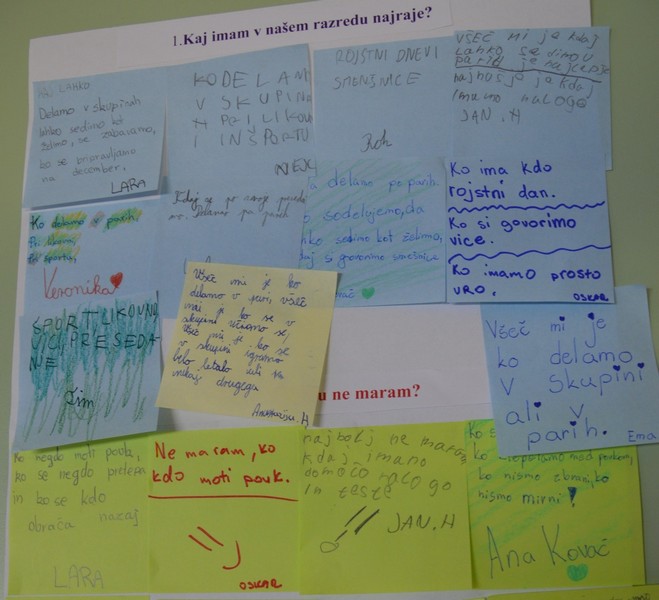 1.Kaj imam v našem razredu najraje?
LAHKO
Delamo v skupinah
lahko sedimo kot
želimo, se zabavamo,
ko se pripravljamo
na december.
LARA
KO DELAM
V SKUPINA
H PRI LIKOVN
I IN ŠPORTU
NEX
ROJSTNI DNEVI
SMEŠNICE
Rok
VŠEČ MI JE KDAJ
LAHKO SEDIMO V
PARIH JE NAJLEPŠE
NAJHUŠJE JE KDAJ
IMAMO NALOGE
JAN.H
Ko delamo v parih.
Pri likovni,
Pri športu.
Veronika
delamo po parih.
sodelujemo, da
lahko sedimo kot želimo,
si govorimo smešnice
Ko ima kdo
rojstni dan.
Ko si govorimo
vice.
Ko imamo prosto
uro.
OSKAR
ŠPORT LIKOVNO
VICI PRESEDA
NJE
Všeč mi je ko
delamo v parih, všeč
mi je ko se v
skupini učimo se,
všeč mi je ko se
v skupini igramo
belo letalo ali še
nekaj drugega
H
Všeč mi je
ko delamo
v skupini
ali v
parih.
Ema
ne maram?
Ko negdo moti pouk,
ko se negdo pretepa
in ko se kdo
obrača nazaj
LARA
Ne maram, ko
kdo moti pouk.
OSKAR
najbolj ne maram
kdaj imamo
domačo nalogo
in teste
JAN.H
klepetamo med poukom,
ko nismo zbrani, ko
nismo mirni!
Ana Kovač